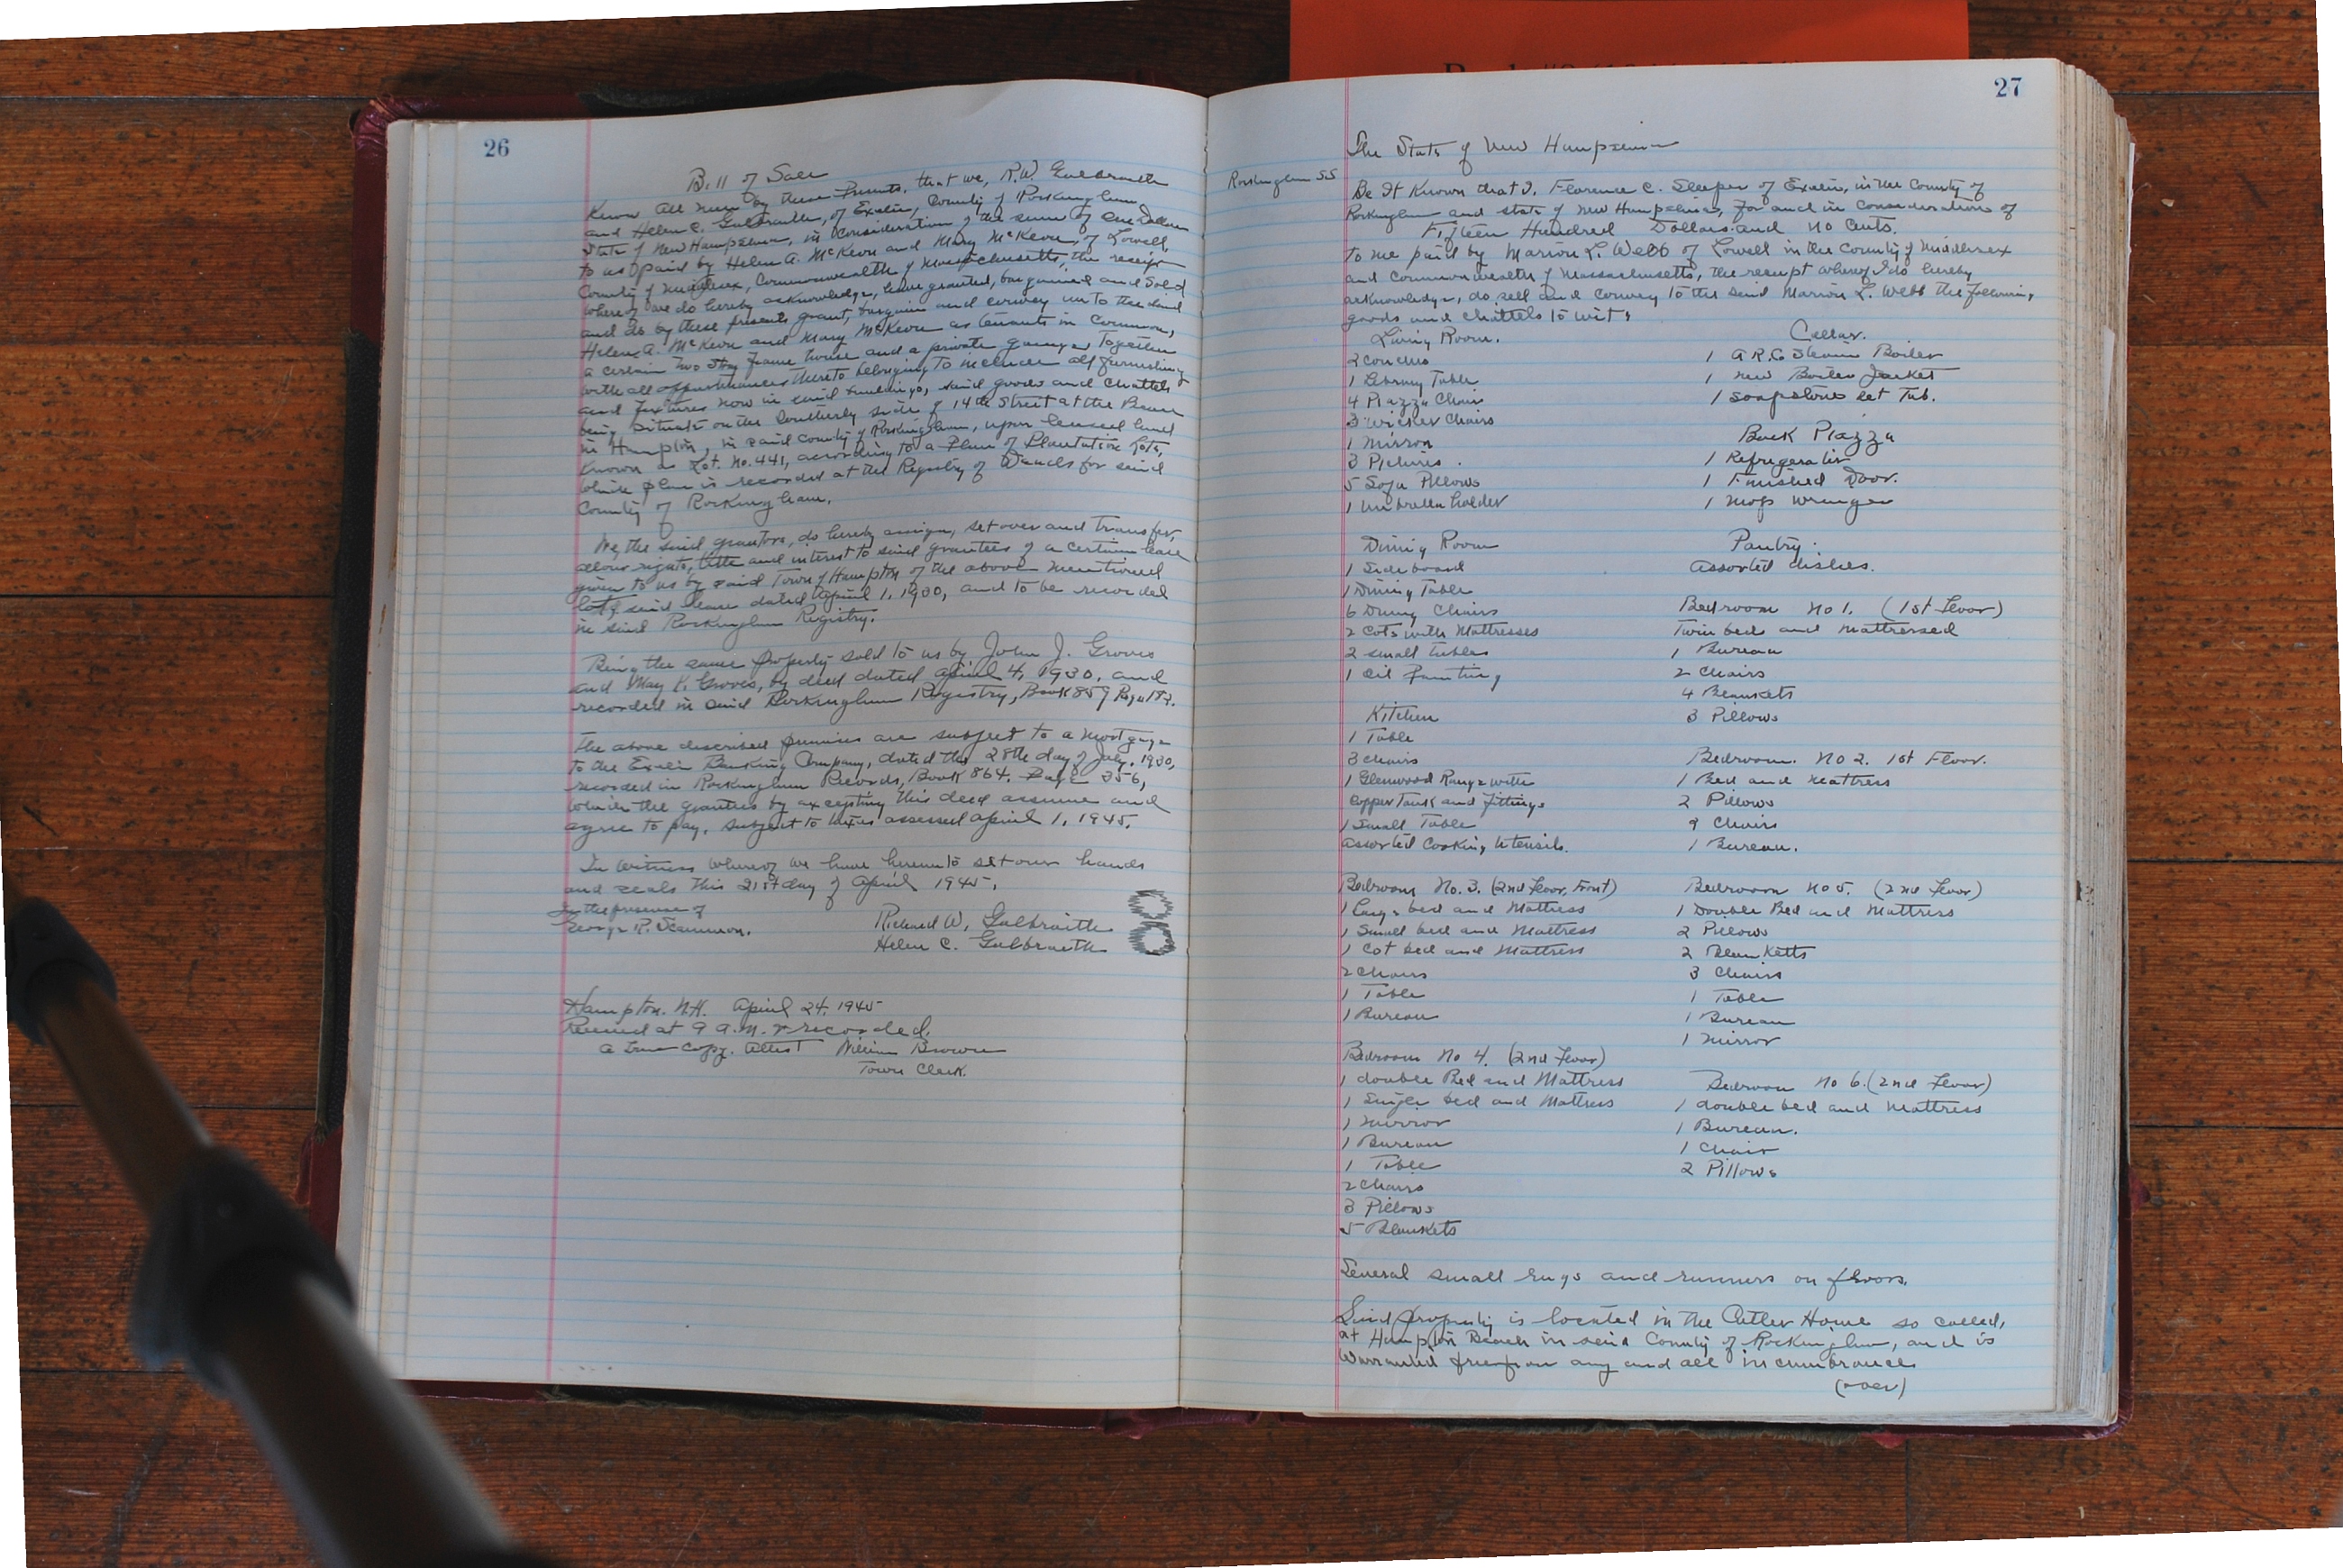 26
Bill of Sale
Know All Men by these Presents, that we, R.W. Galbraith
and Helen C. Galbraith, of Exeter, County of Rockingham,
State of New Hampshire, in consideration of the sum of One Dollar
to us paid by Helen A. McKeon and Mary McKeon, of Lowell,
County of Middlesex, Commonwealth of Massachusetts, the receipt
whereof we do hereby acknowledge, have granted, bargained and sold
and do by these presents grant, bargain and convey unto the said
Helen A. McKeon and Mary McKeon as tenants in common,
a certain two story frame house and a private garage Together
with all appurtenances thereto belonging to include all furnishings
and fixtures now in said buildings, said goods and chattels
being situate on the Southerly side of 14th Street at the Beach
in Hampton, in said County of Rockingham, upon leased land
known as Lot. No. 441, according to a Plan of Plantation Lots,
which plan is recorded at the Registry of Deeds for said
County of Rockingham.
We, the said grantors, do hereby assign, set over and transfer,
all our rights, title and interest to said grantees of a certain lease
given to us by said Town of Hampton of the above mentioned
lot, said lease dated April 1, 1930, and to be recorded
in said Rockingham Registry.
Being the same property sold to us by John J. Groves
and May K. Groves, by deed dated April 4, 1930, and
recorded in said Rockingham Registry, Book 859 Page
The above described premises are subject to a mortgage
to the Exeter Banking Company, dated the 28th day of July, 1930,
recorded in Rockingham Records, Book 864, Page 356,
which the grantees by accepting this deed assume and
agree to pay. Subject to taxes assessed April 1, 1945.
In Witness Whereof we have hereunto set our hands
and seals this 21st day of April 1945.
In the presence of
George R. Scammon.
Richard W. Galbraith
Helen C. Galbraith
Hampton. N.H. April 24, 1945
Received at 9 A.M. & recorded.
A true copy. Attest William Brown
Town Clerk.
27
The State of New Hampshire
Rockingham SS
Be It Known that I, Florence C. Sleeper of Exeter, in the County of
Rockingham and state of New Hampshire, for and in consideration of
Fifteen Hundred Dollars and no Cents.
to me paid by Marion L. Webb of Lowell in the County of Middlesex
and commonwealth of Massachusetts, the receipt whereof I do hereby
acknowledge, do sell and convey to the said Marion L. Webb the following
goods and chattels to wit;
Living Room.
2 couches
1 Library Table
4 Piazza Chairs
3 wicker Chairs
1 Mirror
3 Pictures.
5 Sofa Pillows
1 umbrella holder
Cellar.
1 A.R.Co Steam Boiler
1 new Boiler Jacket
1 Soapstone set Tub.
Back Piazza
1 Refrigerator
1 Finished Door.
1 mop wringer
Dining Room
1 Sideboard
1 Dining Table
6 Dining Chairs
2 Cots with Mattresses
2 small tables
1 oil Painting
Pantry.
Assorted dishes.
Bedroom No 1. (1st floor)
Twin beds and mattressed
1 Bureau
2 Chairs
4 Blankets
3 Pillows
Kitchen
1 Table
3 chairs
1 Glenwood Range with
Copper Tank and fittings
1 Small Table
Assorted Cooking Utensils.
Bedroom. No 2. 1st Floor.
1 Bed and Mattress
2 Pillows
2 Chairs
1 Bureau.
Bedroom No. 3. (2nd floor, Front)
1 large bed and Mattress
1 Small bed and Mattress
1 Cot bed and Mattress
2 Chairs
1 Table
1 Bureau
Bedroom No 5. (2nd floor)
1 Double Bed and Mattress
2 Pillows
2 Blanketts
3 Chairs
1 Table
1 Bureau
1 Mirror
Bedroom No 4. (2nd floor)
1 double Bed and Mattress
1 Single bed and Mattress
1 Mirror
1 Bureau
1 Table
2 Chairs
3 Pillows
5 Blankets
Bedroom No 6. (2nd floor)
1 double bed and Mattress
1 Bureau.
1 Chair
2 Pillows
Several small rugs and runners on floors.
Said property is located in the Cutler Home so called,
at Hampton Beach in said County of Rockingham, and is
Warranted free from any and all incumbrances
(over)